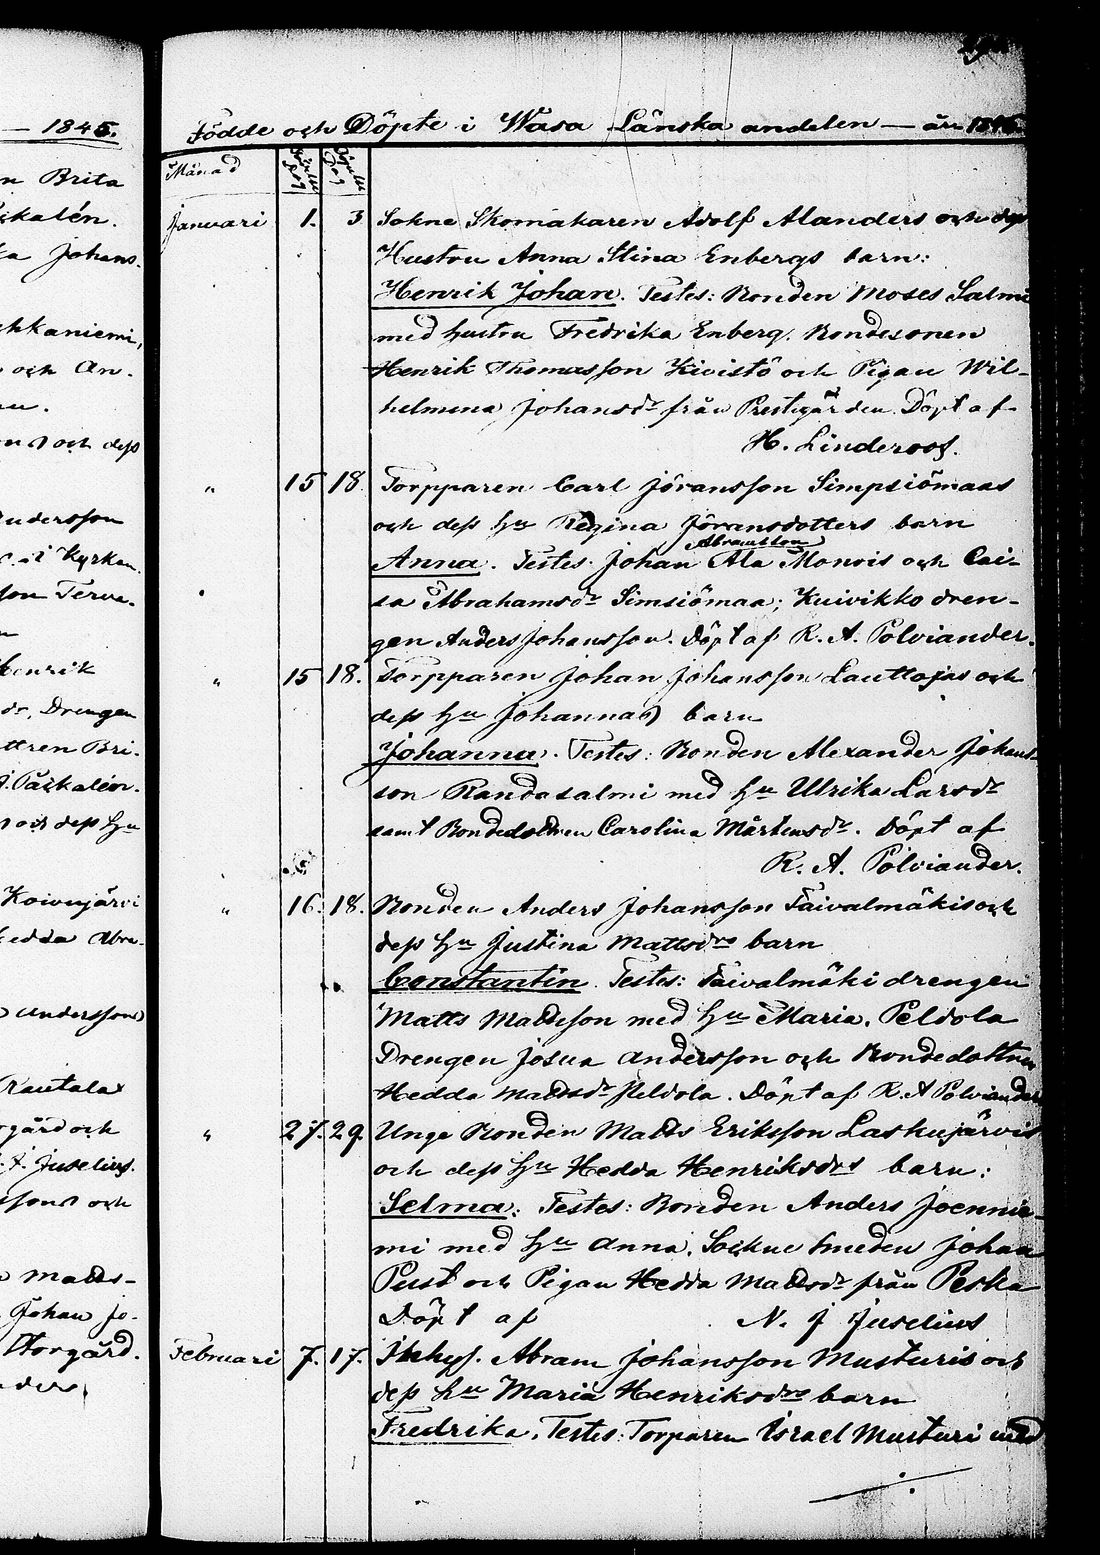 — 1845.
n Brita
skalén.
ka Johans.
hkaniemi,
och An.
nu.
och dess
Andersson
i Kyrkan.
son Terva-
n
Henrik
dr. Drengen
ttren Bri-
Påskalén.
och dess Hu
Koivujärvi
Hedda Abra-
Andersson
Rautala
rgård och
J. Juselius.
ssons och
Matts-
Johan Jo-
Storgård.
nders,
Födde och Döpte i Wasa Länska andelen — år 1846.
Månad
Födelse Dag
Döpelse Dag
Januari 1. 3 Sokne Skomakaren Adolf Alanders och dess
Hustru Anna Stina Enbergs barn:
Henrik Johan. Testes: Bonden Moses Salmi
med hustru Fredrika Enberg. Bondesonen
Henrik Thomasson Kivistö och Pigan Wil-
helmina Johansdr från Prestegården Döpt af
H. Linderoos.
" 15 18 Torpparen Carl Jöransson Simpsiömaas
och dess Hu Regina Jöransdotters barn
Abrahamsson
Anna. Testes. Johan Ala Monois och Cai-
sa Abrahamsdr Simsiömaa; Kuivikko dren-
gen Anders Johansson. Döpt af R. A. Polviander.
" 15 18. Torpparen Johan Johansson Lauttojas och
dess Hu Johannas barn
Johanna. Testes: Bonden Alexander Johans-
son Randasalmi med Hu Ulrika Larsdr
samt Bondedottren Carolina Mårtensdr. Döpt af
R. A. Polviander.
" 16. 18. Bonden Anders Johansson Taivalmäkis och
dess Hu Justina Mattsdrs barn
Constantin. Testes: Taivalmäki drengen
Matts Mattsson med Hu Maria. Peldola
Drengen Josua Andersson och Bondedottren
Hedda Mattsdr Peldola. Döpt af R. A Polviander
" 27. 29. Unge Bonden Matts Eriksson Laskujärvis
och dess Hu Hedda Henriksdrs barn:
Selma. Testes: Bonden Anders Joennie-
mi med Hu Anna. Sockne Smeden Johan
Pust och Pigan Hedda Mattsdr från Peska
Döpt af N. J Juselius
Februari 7. 17. Inhys. Abram Johansson Musturis och
dess Hu Maria Henriksdrs barn
Fredrika. Testes: Torparen Israel Musturi med